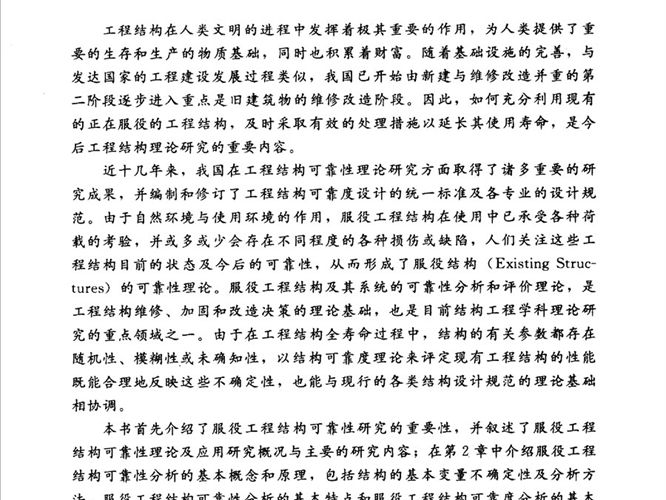 工程结构在人类文明的进程中发挥着极其重要的作用，为人类提供了重
要的生存和生产的物质基础，同时也积累着财富。随着基础设施的完善，与
发达国家的工程建设发展过程类似，我国已开始由新建与维修改造并重的第
二阶段逐步进入重点是旧建筑物的维修改造阶段。因此，如何充分利用现有
的正在服役的工程结构，及时采取有效的处理措施以延长其使用寿命，是今
后工程结构理论研究的重要内容。
近十几年来，我国在工程结构可靠性理论研究方面取得了诸多重要的研
究成果，并编制和修订了工程结构可靠度设计的统一标准及各专业的设计规
范。由于自然环境与使用环境的作用，服役工程结构在使用中已承受各种荷
载的考验，并或多或少会存在不同程度的各种损伤或缺陷，人们关注这些工
程结构目前的状态及今后的可靠性，从而形成了服役结构（Existing Struc-
tures）的可靠性理论。服役工程结构及其系统的可靠性分析和评价理论，是
工程结构维修、加固和改造决策的理论基础，也是目前结构工程学科理论研
究的重点领域之一。由于在工程结构全寿命过程中，结构的有关参数都存在
随机性、模糊性或未确知性，以结构可靠度理论来评定现有工程结构的性能
既能合理地反映这些不确定性，也能与现行的各类结构设计规范的理论基础
相协调。
本书首先介绍了服役工程结构可靠性研究的重要性，并叙述了服役工程
结构可靠性理论及应用研究概况与主要的研究内容；在第2章中介绍服役工程
结构可靠性分析的基本概念和原理，包括结构的基本变量不确定性及分析方
法、服役工程结构可靠性分析的基本特点和服役工程结构可靠度分析的基本